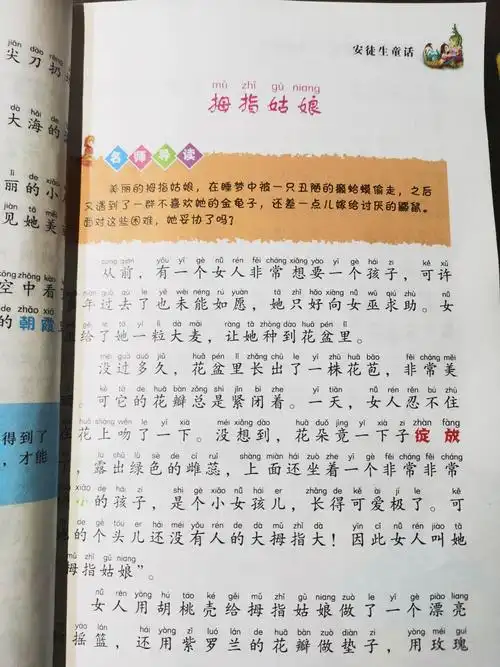 jiān dāo rēng
尖刀扔
dà hǎi de
大海的
lì de xiǎo
丽的小
jiàn tā měi
见她美
kōng zhōng kàn
空中看
de zhāo xiá
的朝霞
得到了
，才能
安徒生童话
mǔ zhǐ gū niang
拇指姑娘
名师导读
美丽的拇指姑娘，在睡梦中被一只丑陋的癞蛤蟆偷走，之后
又遇到了一群不喜欢她的金龟子，还差一点儿嫁给讨厌的鼹鼠。
面对这些困难，她妥协了吗？
cóng qián yǒu yí gè nǚ rén fēi cháng xiǎng yào yí gè hái zi kě xǔ
从前，有一个女人非常想要一个孩子，可许
nián guò qù le yě wèi néng rú yuàn tā zhǐ hǎo xiàng nǚ wū qiú zhù nǚ
年过去了也未能如愿，她只好向女巫求助。女
gěi le tā yí lì dà mài ràng tā zhòng dào huā pén lǐ
给了她一粒大麦，让她种到花盆里。
méi guò duō jiǔ huā pén lǐ zhǎng chū le yì zhū huā bāo fēi cháng měi
没过多久，花盆里长出了一株花苞，非常美
kě tā de huā bàn zǒng shì jǐn bì zhe yì tiān nǚ rén rěn bú zhù
。可它的花瓣总是紧闭着。一天，女人忍不住
huā shàng wěn le yí xià méi xiǎng dào huā duǒ jìng yí xià zi zhàn fàng
花上吻了一下。没想到，花朵竟一下子绽放
lòu chū lǜ sè de cí ruǐ shàng miàn hái zuò zhe yí gè fēi cháng fēi cháng
，露出绿色的雌蕊，上面还坐着一个非常非常
xiǎo de hái zi shì gè xiǎo nǚ hái er zhǎng de kě ài jí le kě
的孩子，是个小女孩儿，长得可爱极了。可
de gè tóu er hái méi yǒu rén de dà mǔ zhǐ dà yīn cǐ nǚ rén jiào tā
她的个头儿还没有人的大拇指大！因此女人叫她
mǔ zhǐ gū niang
拇指姑娘”。
nǚ rén yòng hú táo ké gěi mǔ zhǐ gū niang zuò le yí gè piào liang
女人用胡桃壳给拇指姑娘做了一个漂亮
yáo lán hái yòng zǐ luó lán de huā bàn zuò diàn zi yòng méi gui
摇篮，还用紫罗兰的花瓣做垫子，用玫瑰